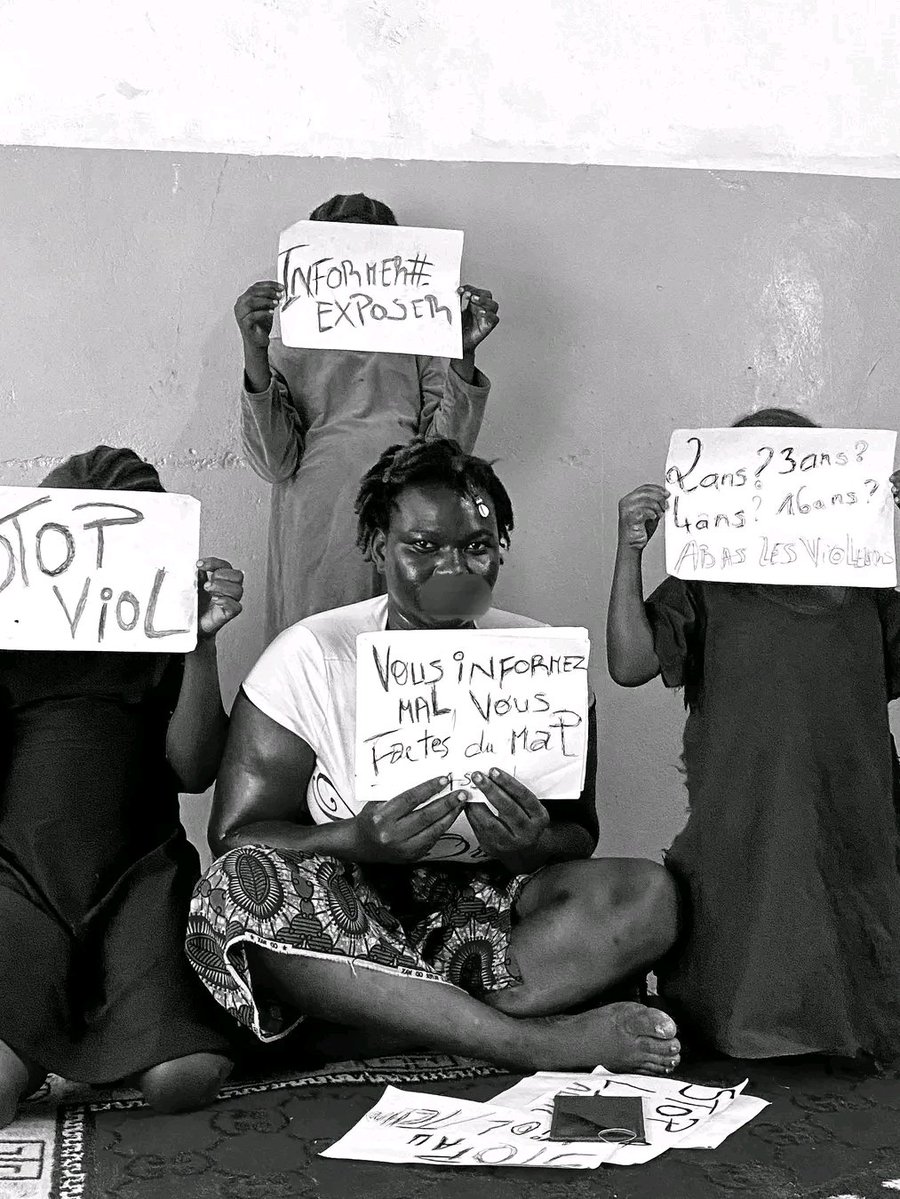 INFORMER#
EXPOSER
STOP
VIOL
2ans? 3ans?
4ans? 16ans?
ABAS LES VIOLEURS
VOUS INFORMEZ
MAL, VOUS
Faites du MaL
STOP
STOP AU